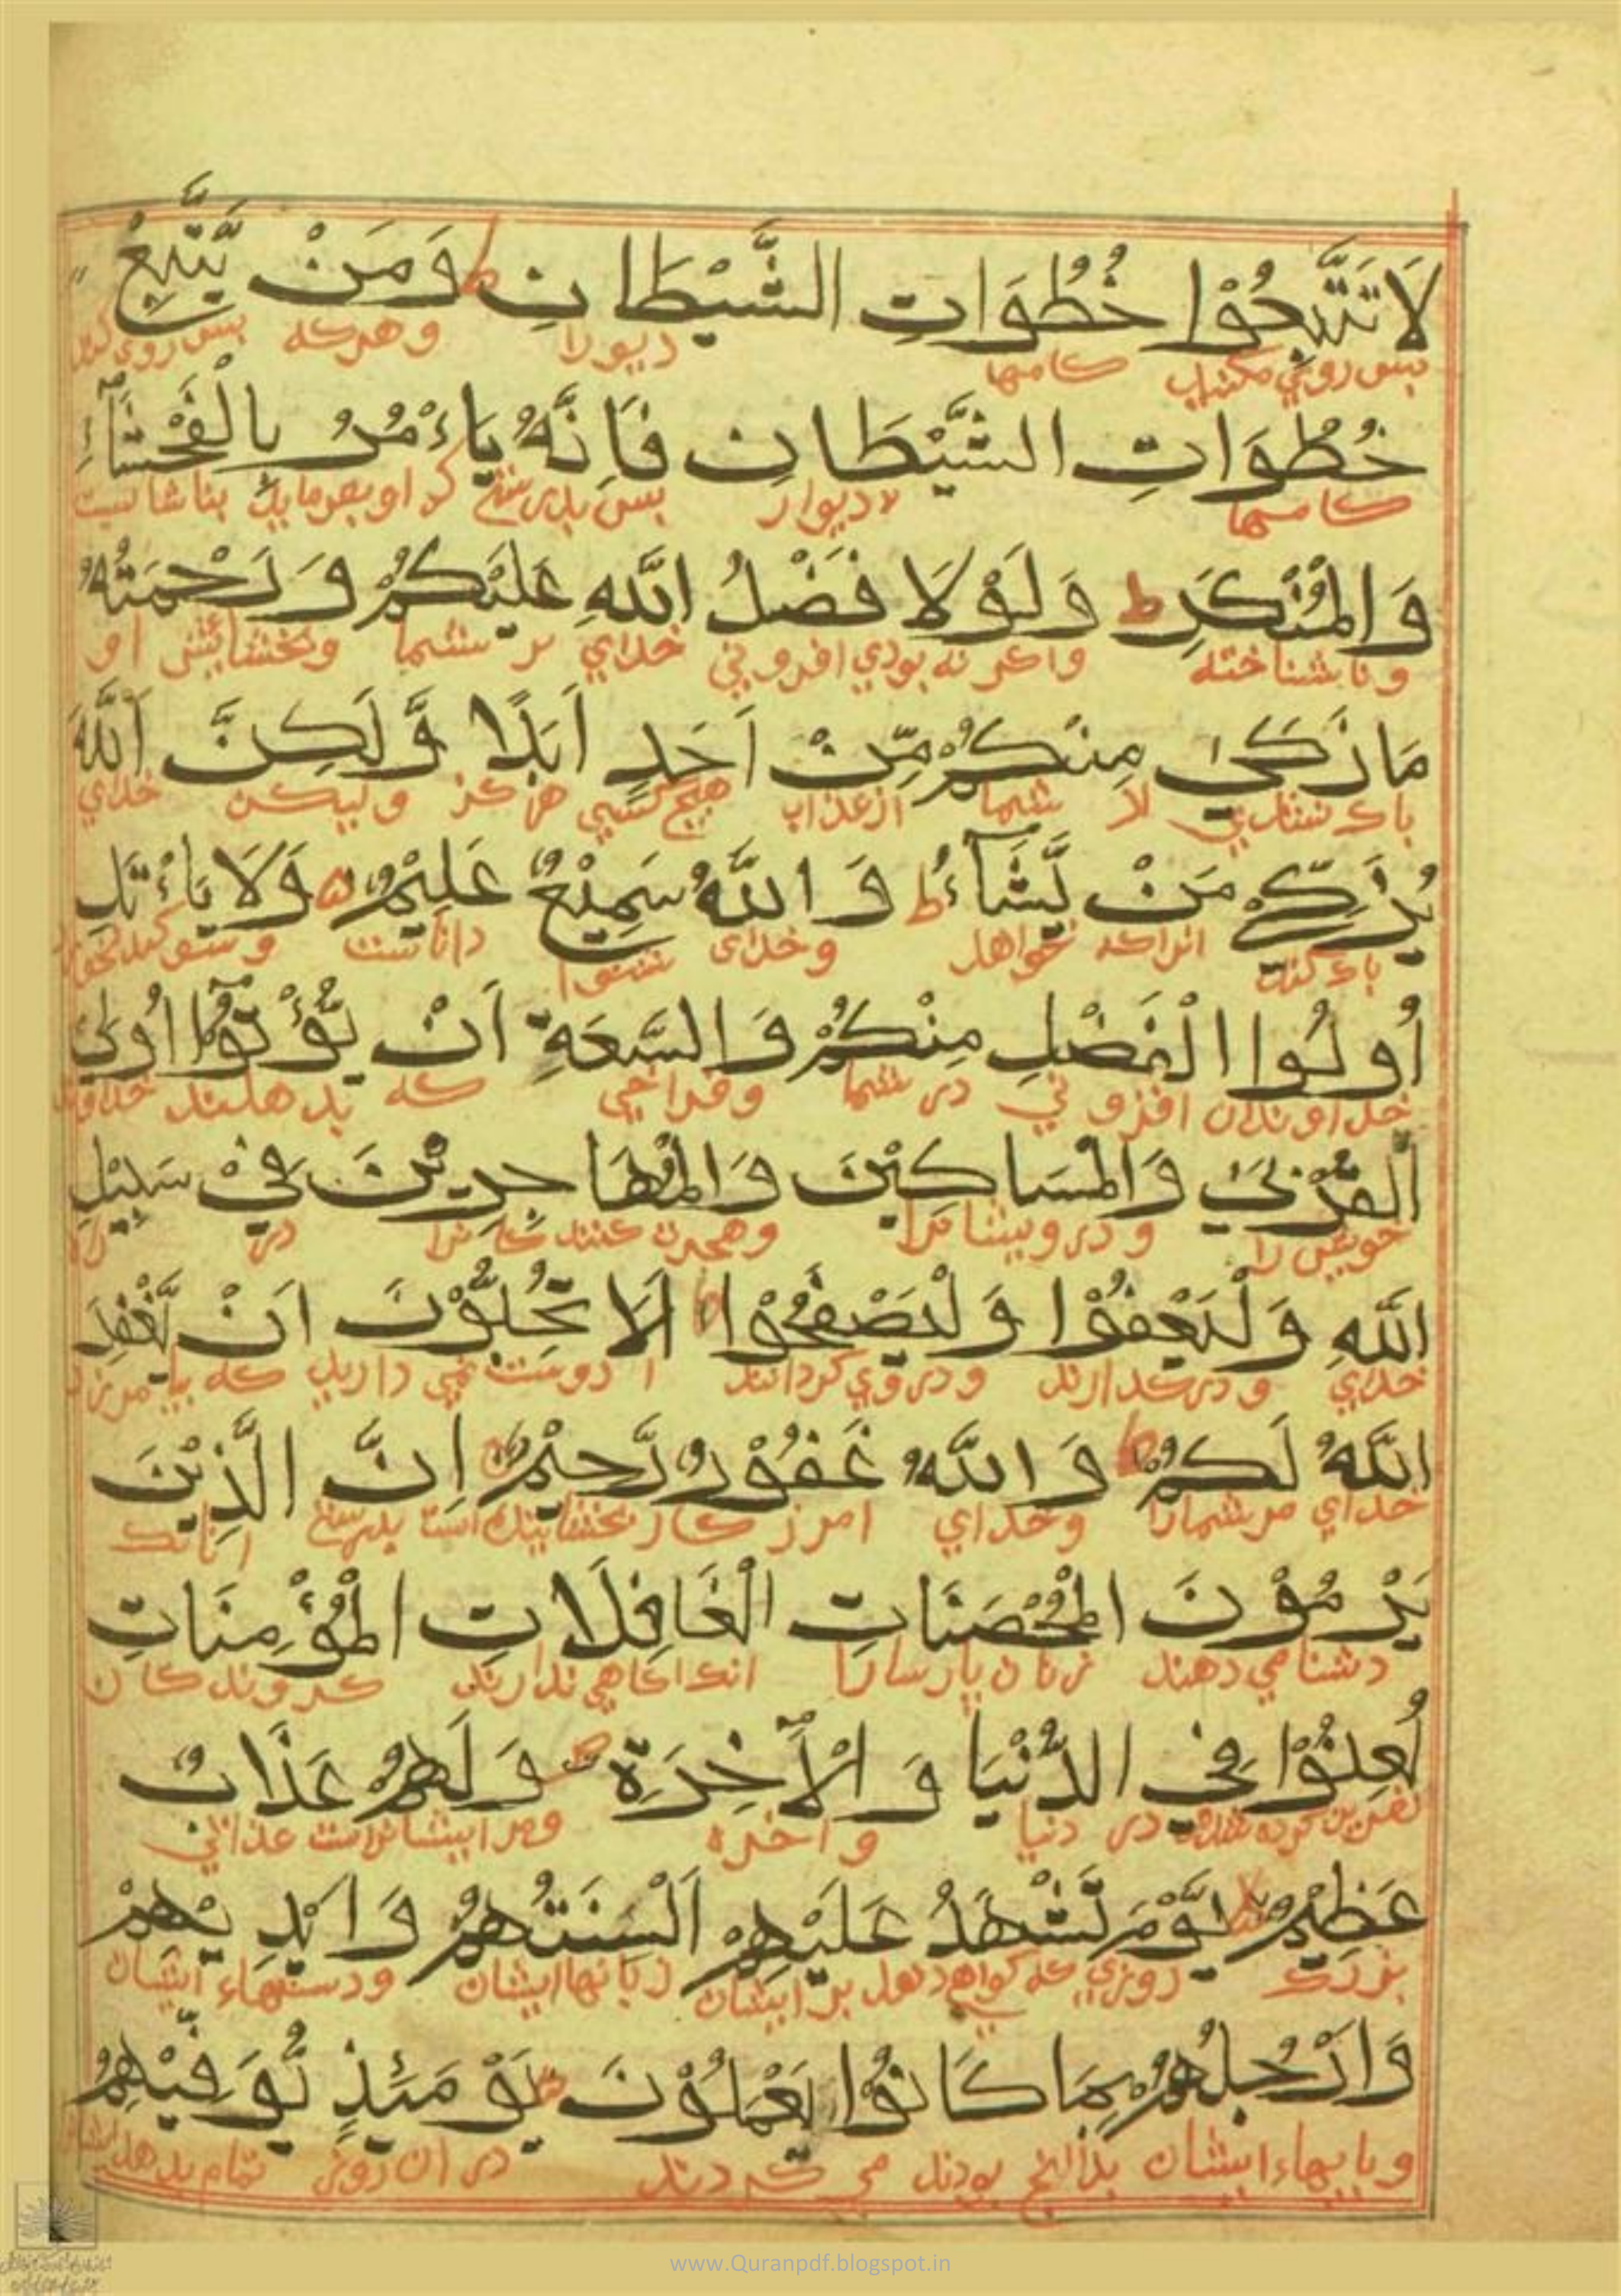 لَا تَتَّبِعُوْا خُطُوَاتِ الشَّيْطَانِ ط وَمَنْ يَّتَّبِعْ
بس روي مكنيد كامها ديورا وهركه بس روي كند
خُطُوَاتِ الشَّيْطَانِ فَاِنَّهُ يَاءْمُرُ بِالْفَحْشَآءِ
كامها ديوار بس بدرستي كه او بفرمايد بناشايست
وَالْمُنْكَرِ ط وَلَوْلَا فَضْلُ اللّٰهِ عَلَيْكُمْ وَرَحْمَتُهُ
وناشناخته واكر نه بودي افزوني خداي بر شما وبخشايش او
مَا زَكٰى مِنْكُمْ مِّنْ اَحَدٍ اَبَدًا وَّلَكِنَّ اللّٰهَ
باك نشدي از شما از عذاب هيچ كسي هركز وليكن خداي
يُزَكِّيْ مَنْ يَّشَآءُ ط وَاللّٰهُ سَمِيْعٌ عَلِيْمٌ وَلَا يَاءْتَلِ
باك كند انراكه خواهد وخداى شنوا داناست
اُولُوا الْفَضْلِ مِنْكُمْ وَالسَّعَةِ اَنْ يُّؤْتُوْٓا اُولِي
خداوندان افزوني در شما وفراخي كه بدهند
الْقُرْبٰى وَالْمَسَاكِيْنَ وَالْمُهَاجِرِيْنَ فِيْ سَبِيْلِ
خويش را ودرويشانرا وهجرت كنندكانرا در راه
اللّٰهِ وَلْيَعْفُوْا وَلْيَصْفَحُوْا اَلَا تُحِبُّوْنَ اَنْ يَّغْفِرَ
خداي ودركدارند ودرروي كردانند ا دوست نمي داريد كه بيامرزد
اللّٰهُ لَكُمْ ط وَاللّٰهُ غَفُوْرٌ رَّحِيْمٌ اِنَّ الَّذِيْنَ
خداي مرشمارا وخداي امرزكار بخشاينده است بدرستي انانك
يَرْمُوْنَ الْمُحْصَنَاتِ الْغَافِلَاتِ الْمُؤْمِنَاتِ
دشنام مي دهند زنان پارسارا انك اكاهي ندارند كروندكان
لُعِنُوْا فِي الدُّنْيَا وَالْاٰخِرَةِ وَلَهُمْ عَذَابٌ
نفرين كرده شدند در دنيا واخره ومرايشانراست عذابي
عَظِيْمٌ يَّوْمَ تَشْهَدُ عَلَيْهِمْ اَلْسِنَتُهُمْ وَاَيْدِيْهِمْ
بزرك روزي كه كواهي دهد بر ايشان زبانهاايشان ودستهاء ايشان
وَاَرْجُلُهُمْ بِمَا كَانُوْا يَعْمَلُوْنَ يَوْمَئِذٍ يُّوَفِّيْهِمُ
وپايهاء ايشان بدانچ بودند مي كردند در ان روز تمام بدهد
www.Quranpdf.blogspot.in